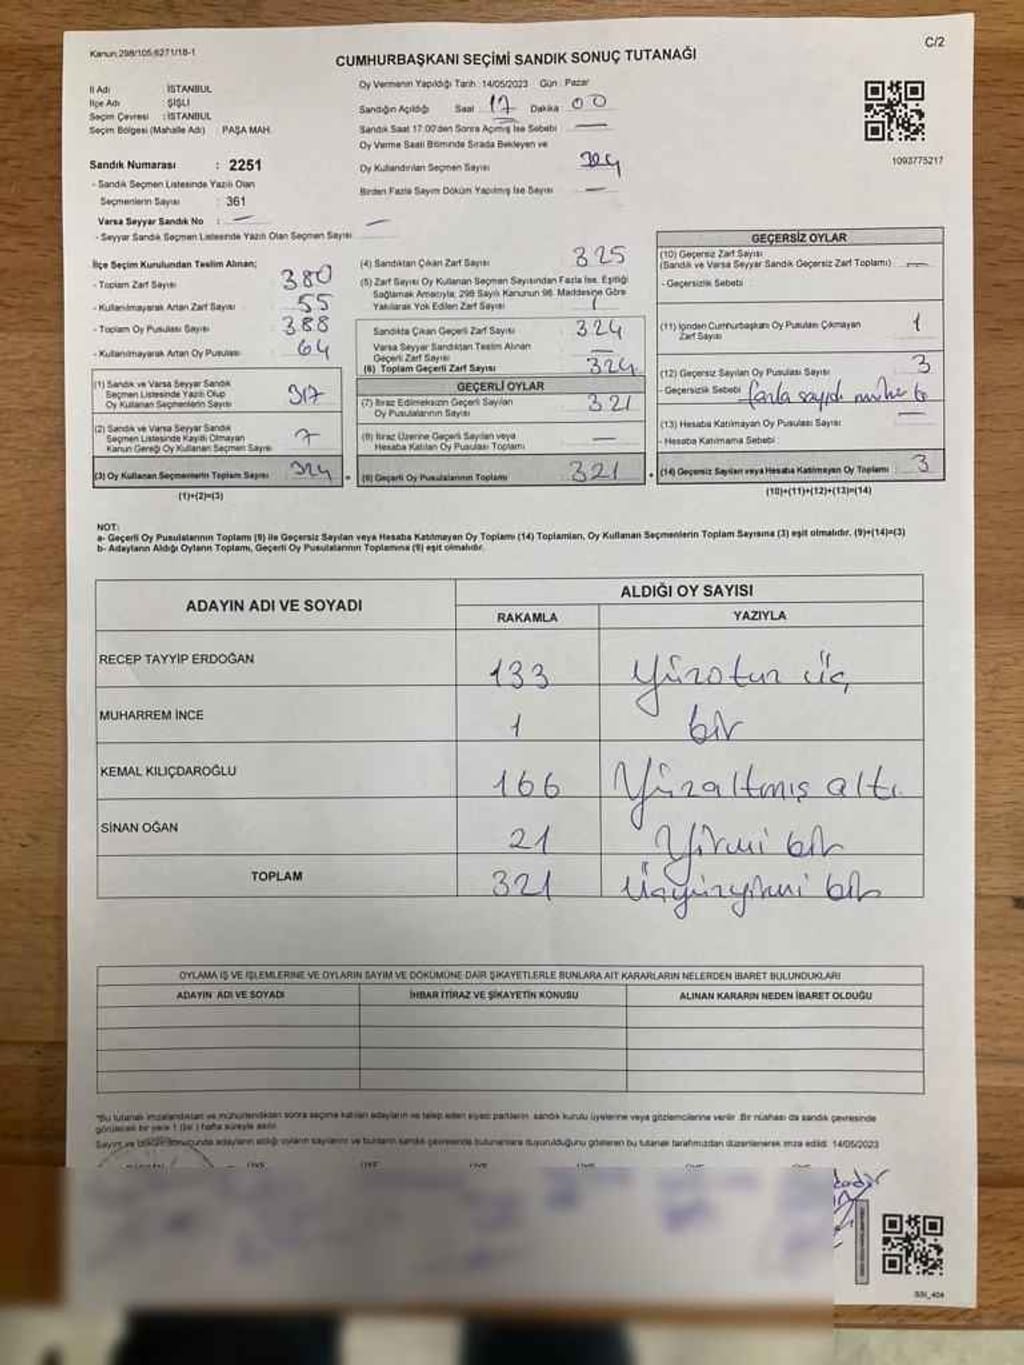 Kanun:298/105,6271/18-1
C/2
CUMHURBAŞKANI SEÇİMİ SANDIK SONUÇ TUTANAĞI
İl Adı İSTANBUL
İlçe Adı ŞİŞLİ
Seçim Çevresi : İSTANBUL
Seçim Bölgesi (Mahalle Adı) PAŞA MAH.
Sandık Numarası : 2251
- Sandık Seçmen Listesinde Yazılı Olan
Seçmenlerin Sayısı : 361
Varsa Seyyar Sandık No : —
- Seyyar Sandık Seçmen Listesinde Yazılı Olan Seçmen Sayısı —
Oy Vermenin Yapıldığı Tarih: 14/05/2023 Gün : Pazar
Sandığın Açıldığı Saat 17 Dakika 00
Sandık Saat 17:00'den Sonra Açılmış İse Sebebi —
Oy Verme Saati Bitiminde Sırada Bekleyen ve
Oy Kullandırılan Seçmen Sayısı 324
Birden Fazla Sayım Döküm Yapılmış İse Sayısı —
1093775217
İlçe Seçim Kurulundan Teslim Alınan;
- Toplam Zarf Sayısı 380
- Kullanılmayarak Artan Zarf Sayısı 55
- Toplam Oy Pusulası Sayısı 388
- Kullanılmayarak Artan Oy Pusulası 64
(1) Sandık ve Varsa Seyyar Sandık
Seçmen Listesinde Yazılı Olup
Oy Kullanan Seçmenlerin Sayısı 317
(2) Sandık ve Varsa Seyyar Sandık
Seçmen Listesinde Kayıtlı Olmayan
Kanun Gereği Oy Kullanan Seçmen Sayısı 7
(3) Oy Kullanan Seçmenlerin Toplam Sayısı 324 =
(1)+(2)=(3)
(4) Sandıktan Çıkan Zarf Sayısı 325
(5) Zarf Sayısı Oy Kullanan Seçmen Sayısından Fazla İse, Eşitliği
Sağlamak Amacıyla; 298 Sayılı Kanunun 98. Maddesine Göre
Yakılarak Yok Edilen Zarf Sayısı 1
Sandıkta Çıkan Geçerli Zarf Sayısı 324
Varsa Seyyar Sandıktan Teslim Alınan
Geçerli Zarf Sayısı —
(6) Toplam Geçerli Zarf Sayısı 324
GEÇERLİ OYLAR
(7) İtiraz Edilmeksizin Geçerli Sayılan
Oy Pusulalarının Sayısı 321
(8) İtiraz Üzerine Geçerli Sayılan veya
Hesaba Katılan Oy Pusulası Toplamı —
(9) Geçerli Oy Pusulalarının Toplamı 321 +
GEÇERSİZ OYLAR
(10) Geçersiz Zarf Sayısı
(Sandık ve Varsa Seyyar Sandık Geçersiz Zarf Toplamı) —
- Geçersizlik Sebebi
(11) İçinden Cumhurbaşkanı Oy Pusulası Çıkmayan
Zarf Sayısı 1
(12) Geçersiz Sayılan Oy Pusulası Sayısı 3
- Geçersizlik Sebebi fazla sayıda
(13) Hesaba Katılmayan Oy Pusulası Sayısı —
- Hesaba Katılmama Sebebi
(14) Geçersiz Sayılan veya Hesaba Katılmayan Oy Toplamı 3
(10)+(11)+(12)+(13)=(14)
NOT:
a- Geçerli Oy Pusulalarının Toplamı (9) ile Geçersiz Sayılan veya Hesaba Katılmayan Oy Toplamı (14) Toplamları, Oy Kullanan Seçmenlerin Toplam Sayısına (3) eşit olmalıdır. (9)+(14)=(3)
b- Adayların Aldığı Oyların Toplamı, Geçerli Oy Pusulalarının Toplamına (9) eşit olmalıdır.
ADAYIN ADI VE SOYADI
ALDIĞI OY SAYISI
RAKAMLA YAZIYLA
RECEP TAYYİP ERDOĞAN 133 Yüzotuz üç
MUHARREM İNCE 1 bir
KEMAL KILIÇDAROĞLU 166 Yüzaltmış altı
SİNAN OĞAN 21 Yirmi bir
TOPLAM 321 Üçyüzyirmi bir
OYLAMA İŞ VE İŞLEMLERİNE VE OYLARIN SAYIM VE DÖKÜMÜNE DAİR ŞİKAYETLERLE BUNLARA AİT KARARLARIN NELERDEN İBARET BULUNDUKLARI
ADAYIN ADI VE SOYADI İHBAR İTİRAZ VE ŞİKAYETİN KONUSU ALINAN KARARIN NEDEN İBARET OLDUĞU
*Bu tutanak imzalandıktan ve mühürlendikten sonra seçime katılan adayların ve talep eden siyasi partilerin sandık kurulu üyelerine veya gözlemcilerine verilir. Bir nüshası da sandık çevresinde
görülecek bir yere 1 (bir) hafta süreyle asılır.
Sayım ve döküm sonucunda adayların aldığı oyların sayılarını ve bunların sandık çevresinde bulunanlara duyurulduğunu gösteren bu tutanak tarafımızdan düzenlenerek imza edildi. 14/05/2023
SSI_404